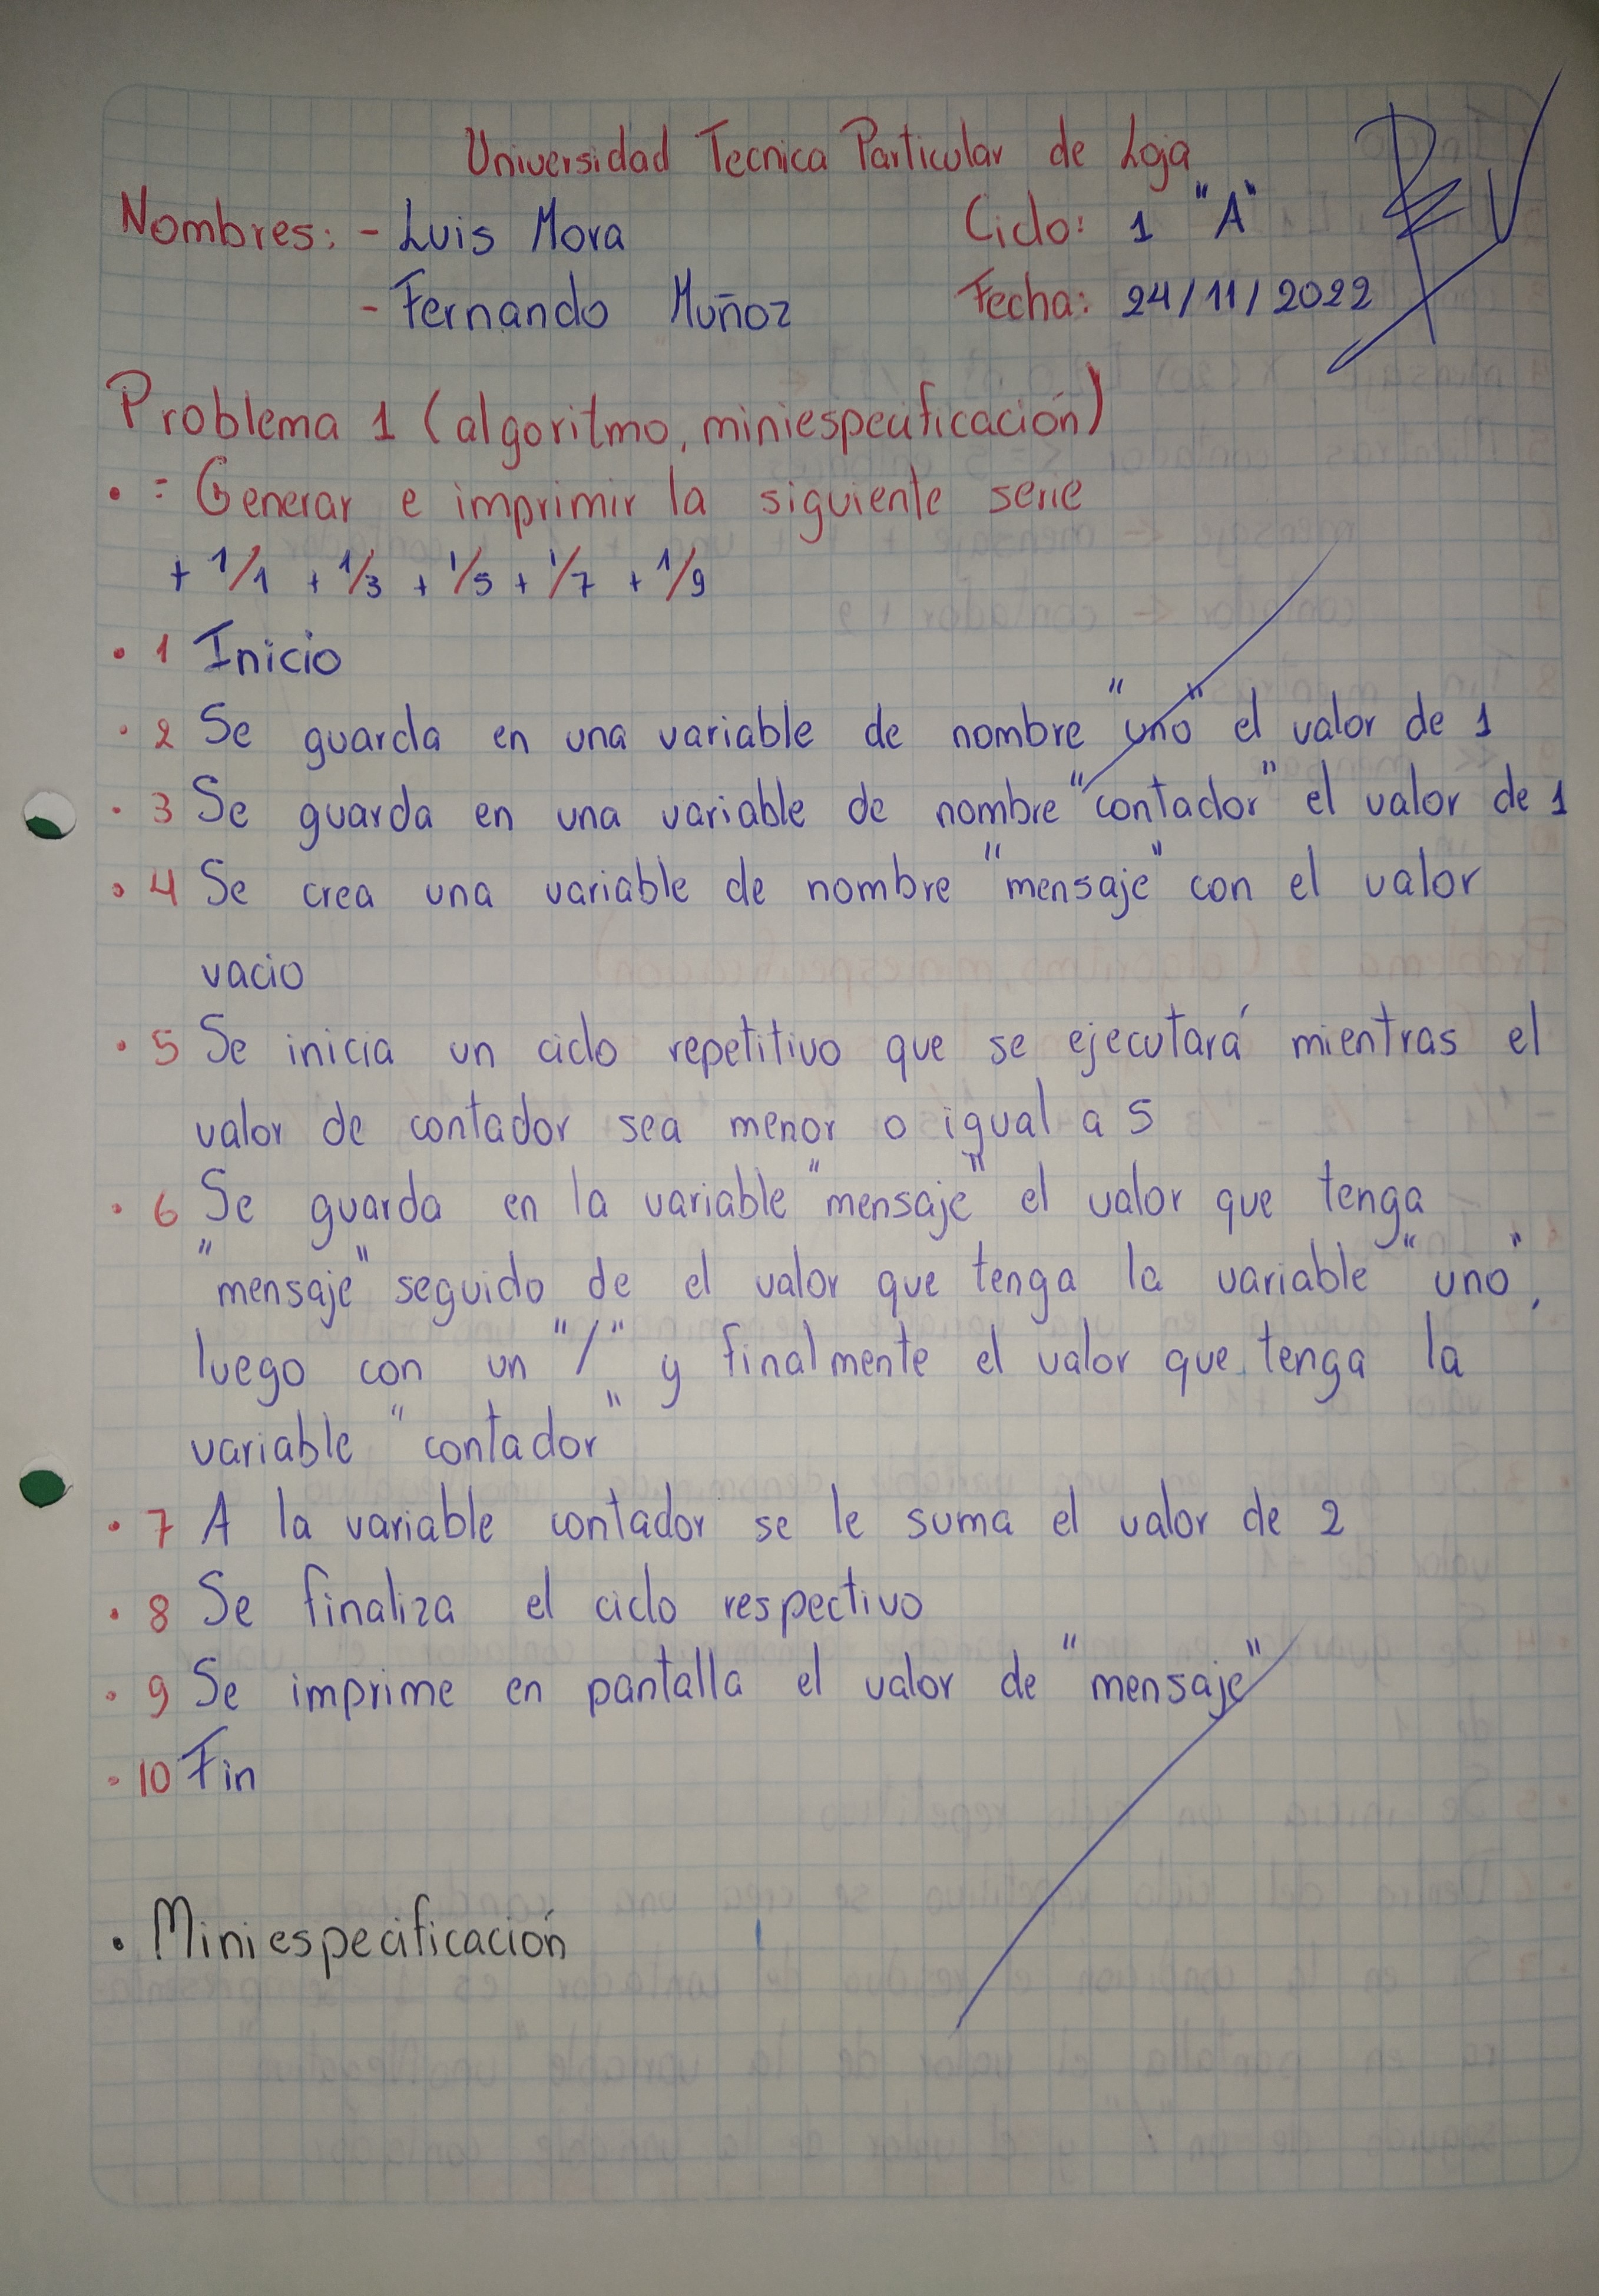 Universidad Tecnica Particular de Loja
Nombres: - Luis Mora Ciclo: 1 "A"
- Fernando Muñoz Fecha: 24/11/2022
Problema 1 (algoritmo, miniespecificación)
• = Generar e imprimir la siguiente serie
+ 1/1 + 1/3 + 1/5 + 1/7 + 1/9
• 1 Inicio
• 2 Se guarda en una variable de nombre "uno" el valor de 1
• 3 Se guarda en una variable de nombre "contador" el valor de 1
• 4 Se crea una variable de nombre "mensaje" con el valor
vacio
• 5 Se inicia un ciclo repetitivo que se ejecutará mientras el
valor de contador sea menor o igual a 5
• 6 Se guarda en la variable "mensaje" el valor que tenga
"mensaje" seguido de el valor que tenga la variable "uno",
luego con un "/" y finalmente el valor que tenga la
variable "contador"
• 7 A la variable contador se le suma el valor de 2
• 8 Se finaliza el ciclo respectivo
• 9 Se imprime en pantalla el valor de "mensaje"
• 10 Fin
• Miniespecificación